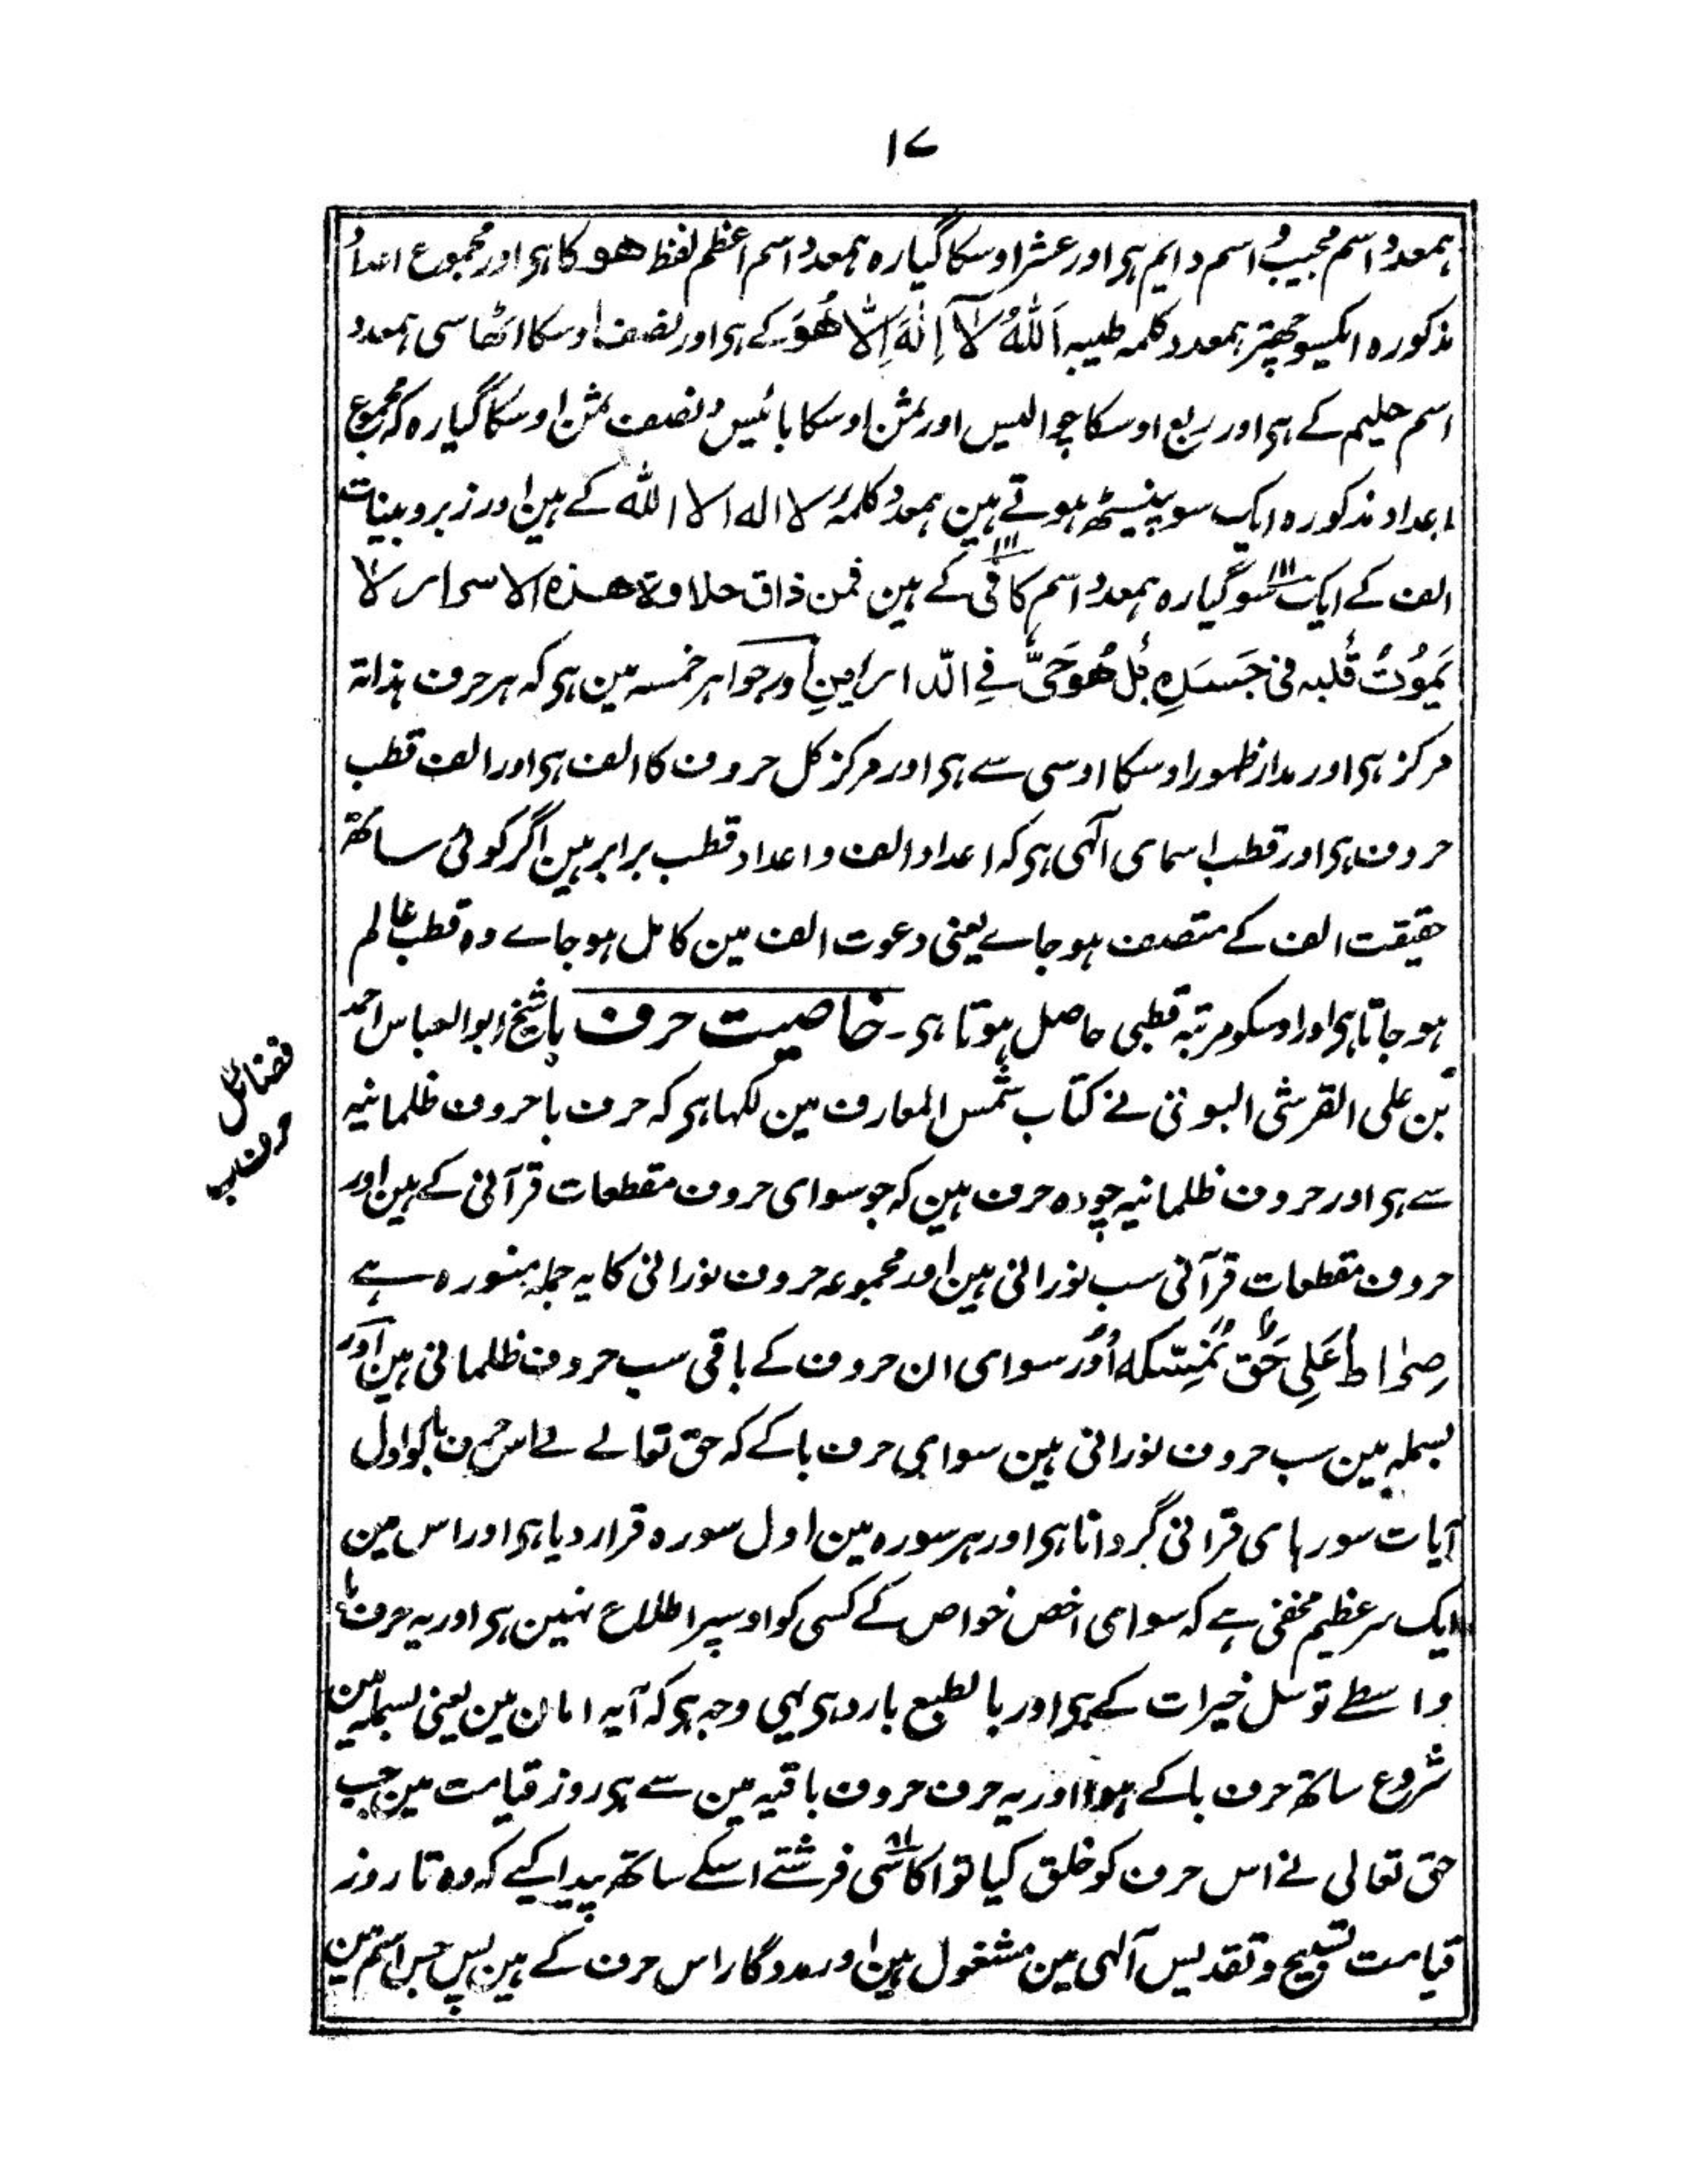 ۱۷
ہمعدد اسم مجیب و اسم دایم ہی اور عشر اوسکا گیارہ ہمعدد اسم اعظم لفظ ھو کا ہی اور مجموع اعداد
مذکورہ ایکسو چھتر ہمعدد کلمہ طیبہ اَللّٰہُ لَآ اِلٰہَ اِلَّا ھُوَ کے ہی اور نصف اوسکا اٹھاسی ہمعدد
اسم حلیم کے ہی اور ربع اوسکا چوالیس اور ثمن اوسکا بائیس و نصف ثمن اوسکا گیارہ کہ مجموع
اعداد مذکورہ ایک سو پینسٹھ ہوتے ہین ہمعدد کلمۂ لا الہ الا اللہ کے ہین اور زبر و بینات
الف کے ایک سو گیارہ ۱۱۱ ہمعدد اسم کافی ۱۱۱ کے ہین فمن ذاق حلاوۃ ھذہ الاسرار لا
یَمُوْتُ قَلبہ فی جَسَدِہ بَل ھُوَ حَیٌّ فِے الدّارَینِ اور جواہر خمسہ مین ہی کہ ہر حرف بذاتہ
مرکز ہی اور مدار ظہور اوسکا اوسی سے ہی اور مرکز کل حروف کا الف ہی اور الف قطب
حروف ہی اور قطب اسمای آلہی ہی کہ اعداد الف و اعداد قطب برابر ہین اگر کوئی ساتھ
حقیقت الف کے متصف ہو جاے یعنی دعوت الف مین کامل ہو جاے وہ قطب عالم
ہو جاتا ہی اور اوسکو مرتبہ قطبی حاصل ہوتا ہی۔ خاصیت حرف با شیخ ابو العباس احمد
بن علی القرشی البونی نے کتاب شمس المعارف مین لکہا ہی کہ حرف با حروف ظلمانیہ
سے ہی اور حروف ظلمانیہ چودہ حرف ہین کہ جو سوای حروف مقطعات قرآنی کے ہین اور
حروف مقطعات قرآنی سب نورانی ہین اور مجموعہ حروف نورانی کا یہ جملہ منورہ ہے
صِرٰاط عَلِی حَق نُمْسِکہ اور سوای ان حروف کے باقی سب حروف ظلمانی ہین اور
بسملہ مین سب حروف نورانی ہین سوای حرف با کے کہ حق تعالے نے اس حرف با کو اول
آیات سورہای قرانی گردانا ہی اور ہر سورہ مین اول سورہ قرار دیا ہی اور اس مین
ایک سر عظیم مخفی ہے کہ سوای اخص خواص کے کسی کو اوسپر اطلاع نہین ہی اور یہ حرف با
واسطے توسل خیرات کے ہی اور بالطبع بارد ہی یہی وجہ ہی کہ آیہ امان مین یعنی بسملہ مین
شروع ساتھ حرف با کے ہوا اور یہ حرف حروف باقیہ مین سے ہی روز قیامت مین جب
حق تعالی نے اس حرف کو خلق کیا تو اکاسی ۸۱ فرشتے اسکے ساتھ پیدا کیے کہ وہ تا روز
قیامت تسبیح و تقدیس آلہی مین مشغول ہین اور مددگار اس حرف کے ہین پس جس اسم مین
فضائل
حرف ب